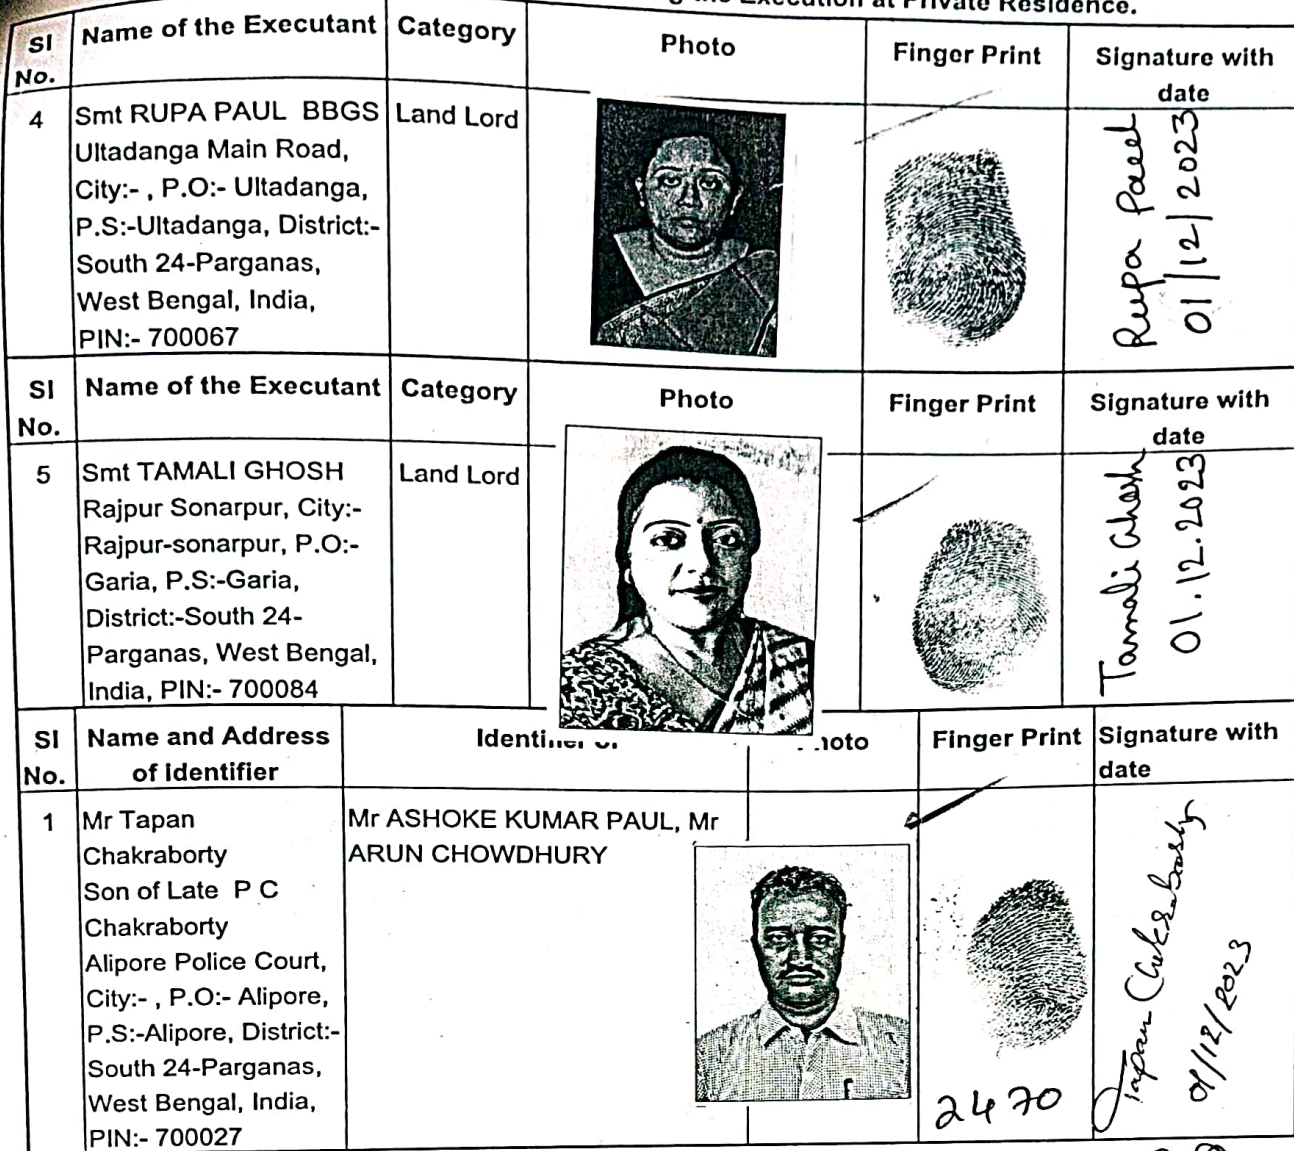 the Execution at Private Residence.
Sl No. Name of the Executant Category Photo Finger Print Signature with date
4 Smt RUPA PAUL BBGS Land Lord
Ultadanga Main Road,
City:- , P.O:- Ultadanga,
P.S:-Ultadanga, District:-
South 24-Parganas,
West Bengal, India,
PIN:- 700067
Rupa Paul
01/12/2023
Sl No. Name of the Executant Category Photo Finger Print Signature with date
5 Smt TAMALI GHOSH Land Lord
Rajpur Sonarpur, City:-
Rajpur-sonarpur, P.O:-
Garia, P.S:-Garia,
District:-South 24-
Parganas, West Bengal,
India, PIN:- 700084
Tamali Ghosh
01.12.2023
Sl No. Name and Address of identifier Identifier of Photo Finger Print Signature with date
1 Mr Tapan Mr ASHOKE KUMAR PAUL, Mr
Chakraborty ARUN CHOWDHURY
Son of Late P C
Chakraborty
Alipore Police Court,
City:- , P.O:- Alipore,
P.S:-Alipore, District:-
South 24-Parganas,
West Bengal, India,
PIN:- 700027
2470
Tapan Chakraborty
01/12/2023